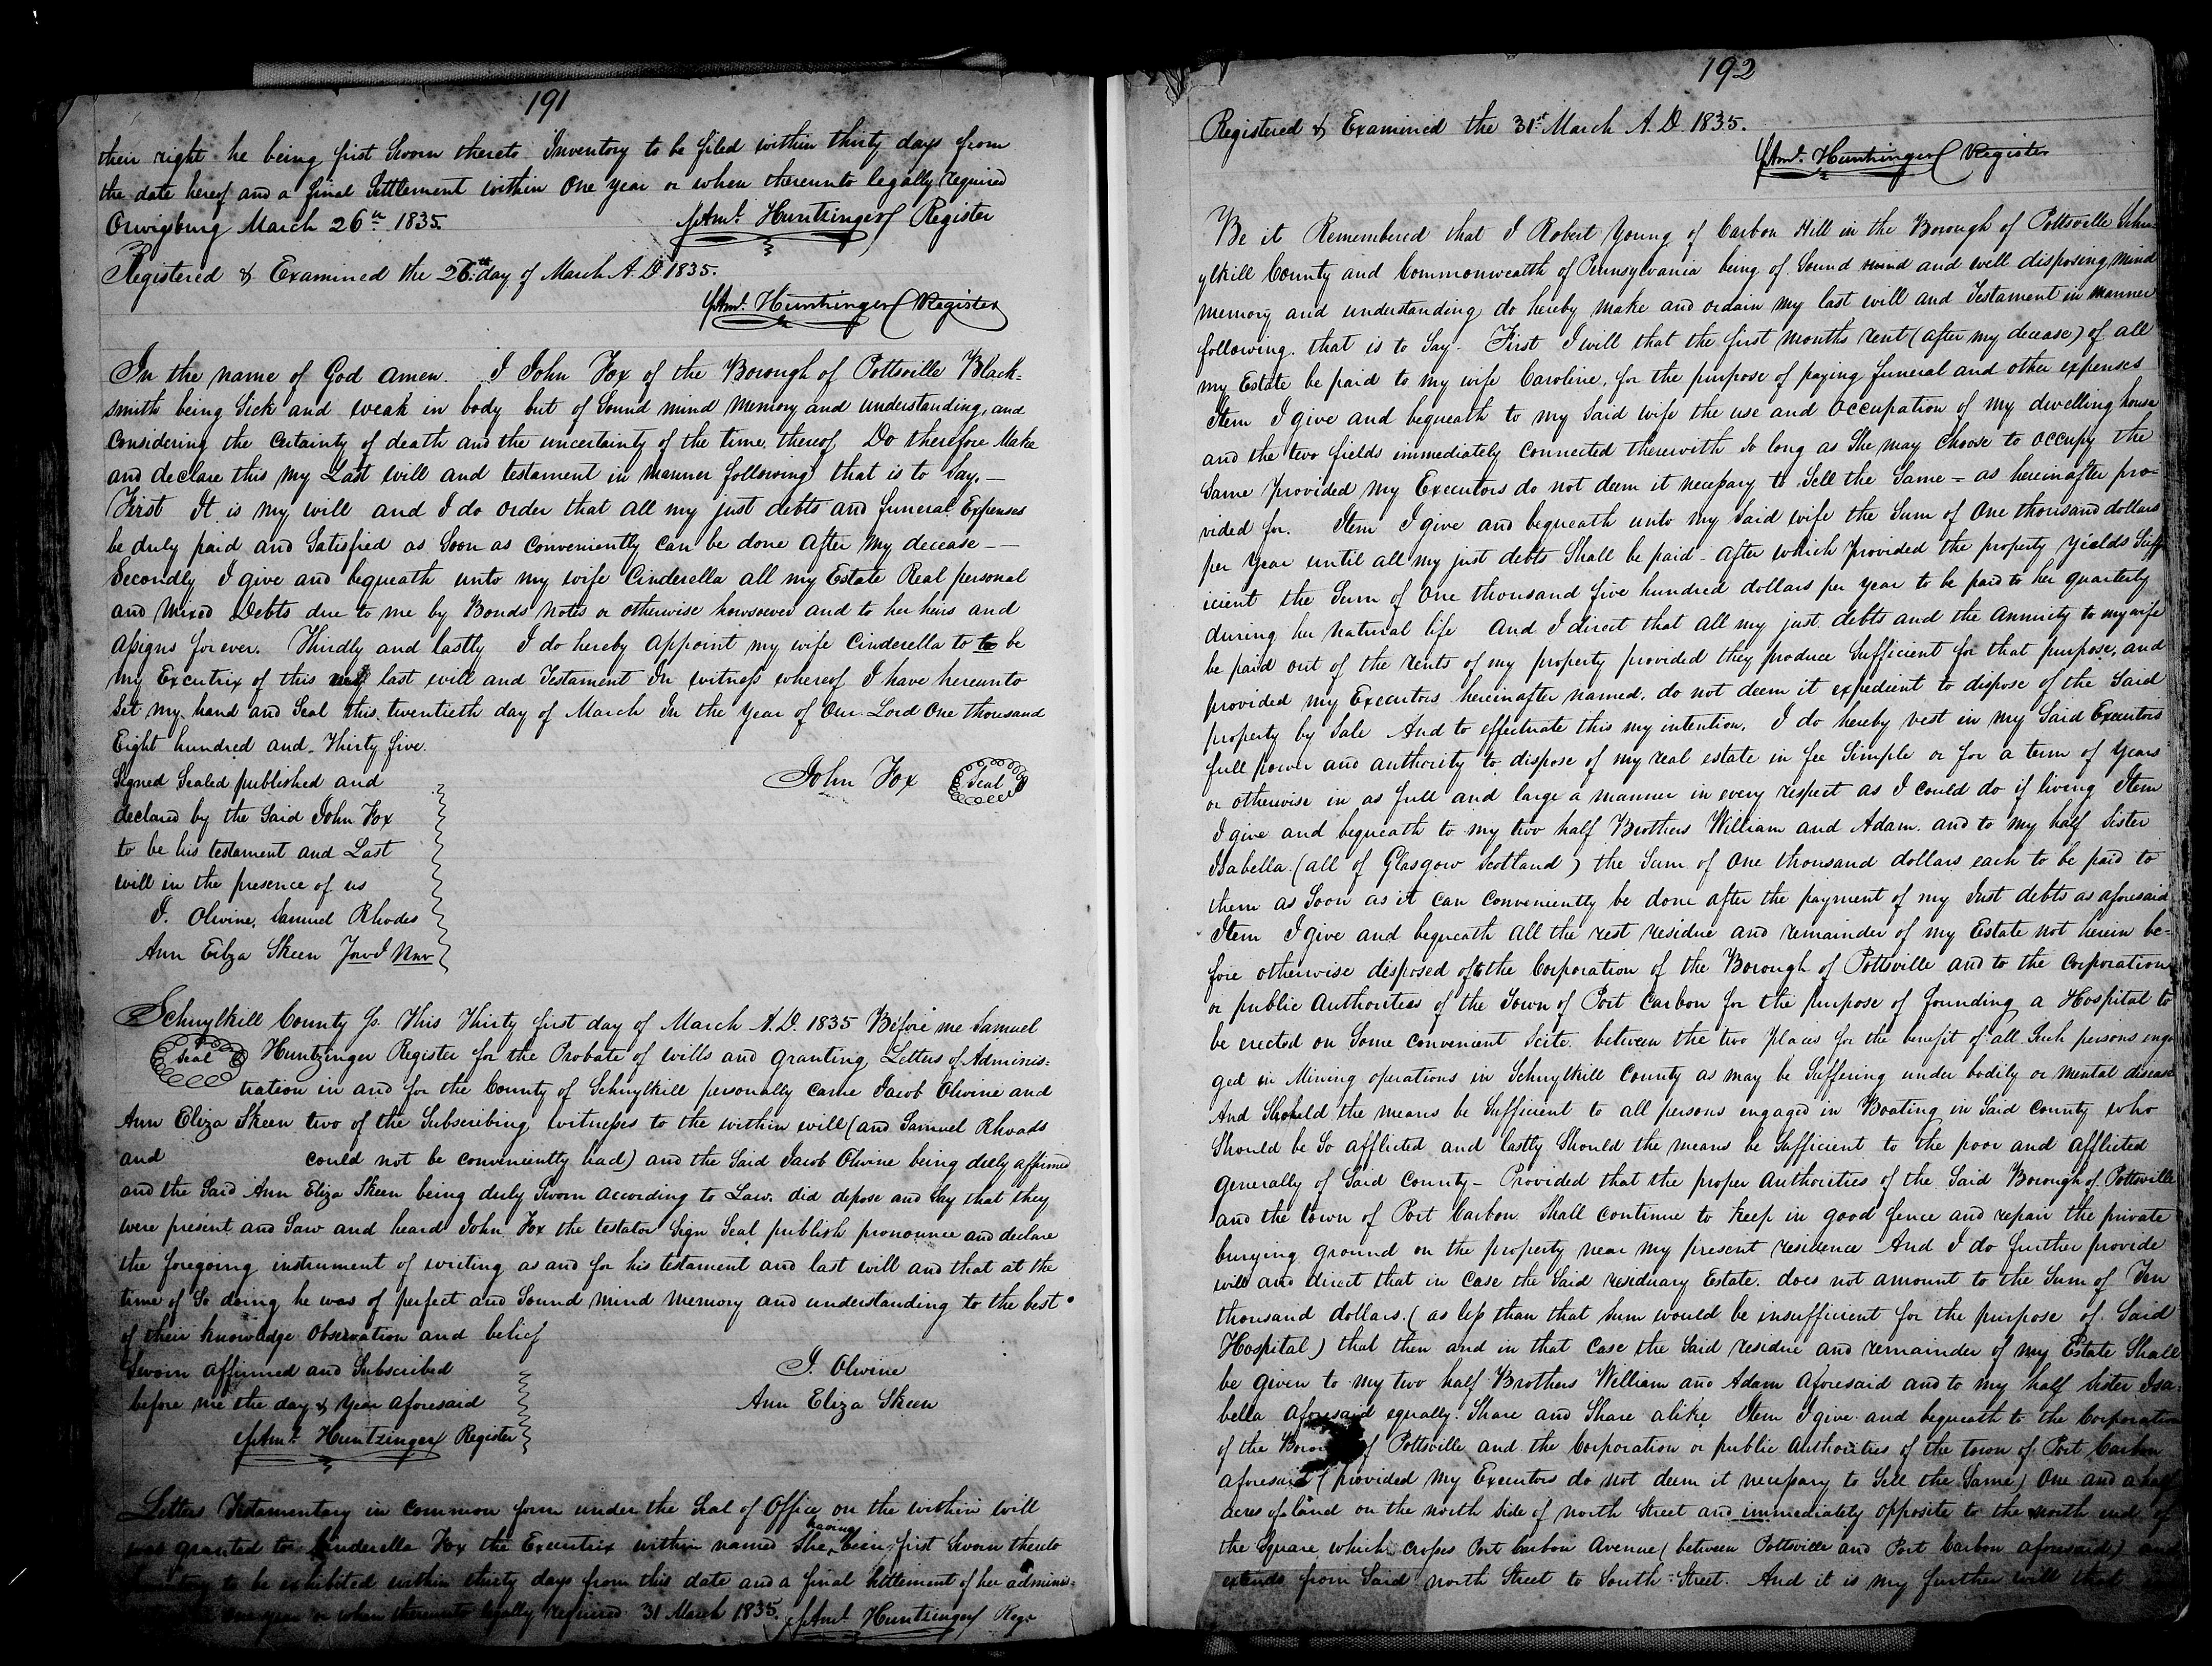 191
their right he being first Sworn thereto Inventory to be filed within thirty days from
the date hereof and a final Settlement within One year or when thereunto legally required
Orwigsburg March 26th 1835. Saml. Huntzinger Register
Registered & Examined the 26th day of March A.D. 1835.
Saml. Huntzinger Register
In the name of God amen. I John Fox of the Borough of Pottsville Black=
smith being Sick and weak in body but of Sound mind memory and understanding, and
Considering the Certainty of death and the uncertainty of the time thereof Do therefore Make
and declare this my Last will and testament in manner following that is to Say. —
First It is my will and I do order that all my just debts and funeral Expenses
be duly paid and Satisfied as Soon as Conveniently Can be done after my decease — —
Secondly I give and bequeath unto my wife Cinderella all my Estate Real personal
and mixed Debts due to me by Bonds notes or otherwise howsoever and to her heirs and
assigns forever. Thirdly and lastly I do hereby appoint my wife Cinderella to to be
my Excutrix of this my last will and Testament In witness whereof I have hereunto
Set my hand and Seal this twentieth day of March In the Year of Our Lord One thousand
Eight hundred and Thirty five.
Signed Sealed published and
declared by the Said John Fox
John Fox Seal
to be his testament and Last
will in the presence of us
J. Olwine, Samuel Rhodes
Ann Eilza Skeen
Schuylkill County Ss. This Thirty first day of March A.D. 1835 Before me Samuel
Seal Huntzinger Register for the Probate of wills and granting Letters of Adminis=
tration in and for the County of Schuylkill personally came Jacob Olwine and
Ann Eliza Skeen two of the Subscribing witnesses to the within will (and Samuel Rhoads
and could not be conveniently had) and the Said Jacob Olwine being duly affirmed
and the Said Ann Eliza Skeen being duly Sworn according to Law. did depose and Say that they
were present and Saw and heard John Fox the testator Sign Seal publish pronounce and declare
the foregoing instrument of writing as and for his testament and last will and that at the
time of So doing he was of perfect and Sound mind memory and understanding to the best
of their knowledge Observation and belief
Sworn affirmed and Subscribed
before me the day & year aforesaid
Saml. Huntzinger Register
J. Olwine
Ann Eliza Skeen
Letters Testamentary in common form under the Seal of Office on the within will
was granted to Cinderella Fox the Executrix within named She having been first Sworn thereto
to be exhibited within thirty days from this date and a final Settlement of her adminis=
one year or when thereunto legally required 31 March 1835. Saml. Huntzinger Regr
192
Registered & Examined the 31st March A.D. 1835.
Saml. Huntzinger Register
Be it Remembered that I Robert Young of Carbon Hill in the Borough of Pottsville Schu
ylkill County and Commonwealth of Pennsylvania being of Sound mind and well disposing mind
memory and understanding do hereby make and ordain my last will and Testament in manner
following. that is to Say - First I will that the first months rent (after my decease) of all
my Estate be paid to my wife Caroline, for the purpose of paying funeral and other expenses
Item I give and bequeath to my Said wife the use and Occupation of my dwelling house
and the two fields immediately Connected therewith So long as She may Choose to occupy the
Same Provided my Executors do not deem it necessary to Sell the Same - as hereinafter pro=
vided for. Item I give and bequeath unto my Said wife the Sum of One thousand dollars
per Year until all my just debts Shall be paid - after which Provided the property Yields Suff
icient the Sum of One thousand five hundred dollars per Year to be paid to her quarterly
during her natural life And I direct that all my just debts and the Annuity to my wife
be paid out of the rents of my property provided they produce Sufficient for that purpose, and
provided my Executors hereinafter named, do not deem it expedient to dispose of the Said
property by Sale And to effectuate this my intention, I do hereby vest in my Said Executors
full power and authority to dispose of my real estate in fee Simple or for a term of Years
or otherwise in as full and large a manner in every respect as I could do if living Item
I give and bequeath to my two half Brothers William and Adam. and to my half Sister
Isabella (all of Glasgow Scotland) the Sum of One thousand dollars each to be paid to
them as Soon as it can conveniently be done after the payment of my Just debts as aforesaid
Item I give and bequeath all the rest residue and remainder of my Estate not herein be=
fore otherwise disposed of to the Corporation of the Borough of Pottsville and to the Corporation
or public Authorities of the Town of Port Carbon for the purpose of founding a Hospital to
be erected on Some convenient Scite between the two Places for the benefit of all Such persons enga
ged in Mining operations in Schuylkill County as may be Suffering under bodily or mental disease
And Should the means be Sufficient to all persons engaged in Boating in Said County who
Should be So afflicted and lastly Should the means be Sufficient to the poor and afflicted
generally of Said County - Provided that the proper authorities of the Said Borough of Pottsville
and the town of Port Carbon Shall continue to keep in good fence and repair the private
burying ground on the property near my present residence And I do further provide
will and direct that in Case the Said residuary Estate. does not amount to the Sum of Ten
thousand dollars. (as less than that Sum would be insufficient for the purpose of Said
Hospital) that then and in that Case the Said residue and remainder of my Estate Shall
be given to my two half Brothers William and Adam aforesaid and to my half Sister Isa=
bella aforesaid equally. Share and Share alike Item I give and bequeath to the Corporation
of the of Pottsville and the Corporation or public Authorities of the town of Port Carbon
aforesaid (provided my Executors do not deem it necessary to Sell the Same) One and a half
acres of land on the north Side of north Street and immediately opposite to the north end of
the Square which crosses Port Carbon Avenue (between Pottsville and Port Carbon aforesaid) and
extends from Said north Street to South Street. And it is my further will that